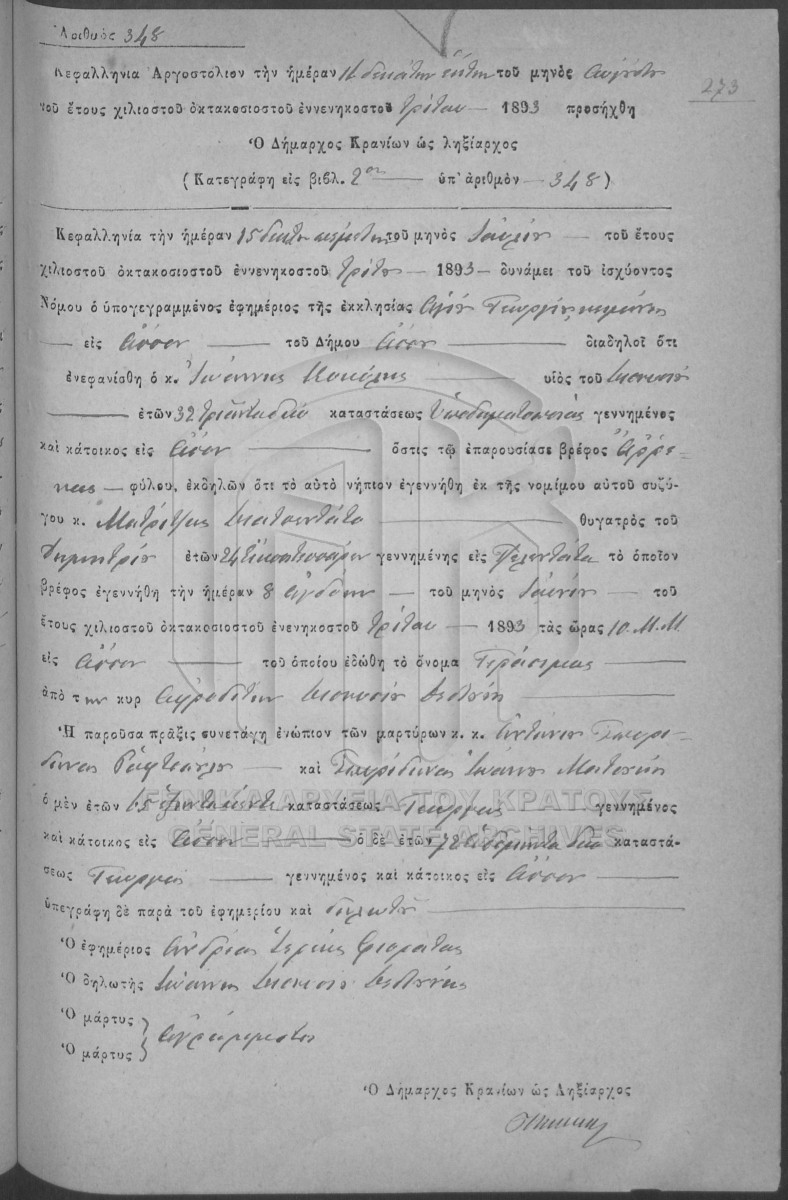 Ἀριθμὸς 348
273
Κεφαλληνια Ἀργοστόλιον τὴν ἡμέραν 16 δεκάτην ἕκτην τοῦ μηνὸς Αὐγούστου
τοῦ ἔτους χιλιοστοῦ ὀκτακοσιοστοῦ ἐννενηκοστοῦ τρίτου — 1893 προσήχθη
Ὁ Δήμαρχος Κρανίων ὡς ληξίαρχος
(Κατεγράφη εἰς βιβλ. 2ον — ὑπ' ἀριθμὸν — 348)
Κεφαλληνία τὴν ἡμέραν 15 δεκάτην πέμπτην τοῦ μηνὸς Ἰουλίου — τοῦ ἔτους
χιλιοστοῦ ὀκτακοσιοστοῦ ἐννενηκοστοῦ τρίτου — 1893 — δυνάμει τοῦ ἰσχύοντος
Νόμου ὁ ὑπογεγραμμένος ἐφημέριος τῆς ἐκκλησίας Ἁγίου Γεωργίου
— εἰς Ἄσσον — τοῦ Δήμου Ἄσου — διαδηλοῖ ὅτι
ἐνεφανίσθη ὁ κ. Ἰωάννης — υἱὸς τοῦ Διονυσίου
— ἐτῶν 32 τριάνταδύο καταστάσεως Ὑποδηματοποιὸς γεννημένος
καὶ κάτοικος εἰς Ἄσον — ὅστις τῷ ἐπαρουσίασε βρέφος Ἄρρε-
νος — φύλου, ἐκδηλῶν ὅτι τὸ αὐτὸ νήπιον ἐγεννήθη ἐκ τῆς νομίμου αὐτοῦ συζύ-
γου κ. — θυγατρὸς τοῦ
Δημητρίου ἐτῶν 24 εἰκοσιτεσσάρων γεννημένης εἰς τὸ ὁποῖον
βρέφος ἐγεννήθη τὴν ἡμέραν 8 ὀγδόην — τοῦ μηνὸς — τοῦ
ἔτους χιλιοστοῦ ὀκτακοσιοστοῦ ἐνενηκοστοῦ τρίτου — 1893 τὰς ὥρας 10 Μ.Μ
εἰς Ἄσσον — τοῦ ὁποίου ἐδώθη τὸ ὄνομα Γεράσιμος —
ἀπὸ την κυρ Ἀφροδίτην Διονυσίου —
Ἡ παροῦσα πρᾶξις συνετάγη ἐνώπιον τῶν μαρτύρων κ. κ. Ἀντώνιο Σπυρί-
δωνος — καὶ Σπυρίδωνος Ἰωάννου
ὁ μὲν ἐτῶν 65 ἑξηνταπέντε καταστάσεως Γεωργὸς — γεννημένος
καὶ κάτοικος εἰς Ἄσσον — ὁ δὲ ἐτῶν 72 ἑβδομήντα δύο καταστά-
σεως Γεωργὸς — γεννημένος καὶ κάτοικος εἰς Ἄσσον —
ὑπεγράφη δὲ παρὰ τοῦ ἐφημερίου καὶ δηλωτοῦ —
Ὁ ἐφημέριος Ἀνδρέας Ἱερεὺς
Ὁ δηλωτής Ἰωάννης Διονυσίου
Ὁ μάρτυς
Ὁ μάρτυς } Ἀγράμματοι
Ὁ Δήμαρχος Κρανίων ὡς Ληξίαρχος
ΓΕΝΙΚΑ ΑΡΧΕΙΑ ΤΟΥ ΚΡΑΤΟΥΣ
GENERAL STATE ARCHIVES